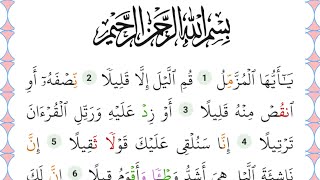 بِسْمِ اللَّهِ الرَّحْمَٰنِ الرَّحِيمِ
يَـٰٓأَيُّهَا ٱلْمُزَّمِّلُ 1 قُمِ ٱلَّيْلَ إِلَّا قَلِيلًا 2 نِّصْفَهُۥٓ أَوِ
ٱنقُصْ مِنْهُ قَلِيلًا 3 أَوْ زِدْ عَلَيْهِ وَرَتِّلِ ٱلْقُرْءَانَ
تَرْتِيلًا 4 إِنَّا سَنُلْقِى عَلَيْكَ قَوْلًا ثَقِيلًا 5 إِنَّ
نَاشِئَةَ ٱلَّيْلِ هِىَ أَشَدُّ وَطْـًٔا وَأَقْوَمُ قِيلًا 6 إِنَّ لَكَ